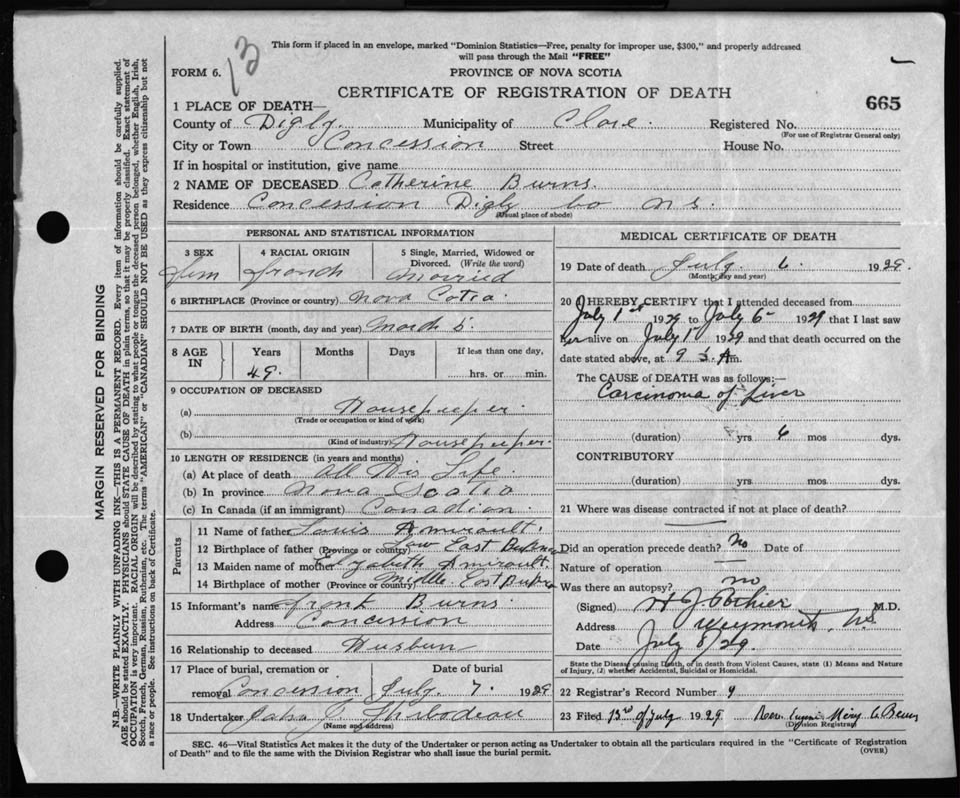 This form if placed in an envelope, marked "Dominion Statistics—Free, penalty for improper use, $300," and properly addressed
will pass through the Mail "FREE"
13
FORM 6.
PROVINCE OF NOVA SCOTIA
CERTIFICATE OF REGISTRATION OF DEATH
665
1 PLACE OF DEATH—
County of Digby. Municipality of Clare. Registered No.
(For use of Registrar General only)
City or Town Concession Street House No.
If in hospital or institution, give name
2 NAME OF DECEASED Catherine Burns.
Residence Concession Digby Co N S.
(Usual place of abode)
PERSONAL AND STATISTICAL INFORMATION
3 SEX Fem
4 RACIAL ORIGIN French
5 Single, Married, Widowed or
Divorced. (Write the word)
Married
6 BIRTHPLACE (Province or country) Nova Cotia.
7 DATE OF BIRTH (month, day and year) March 5.
8 AGE IN Years 49. Months Days If less than one day,
hrs. or min.
9 OCCUPATION OF DECEASED
(a) Housepeeper.
(Trade or occupation or kind of work)
(b) Housepeeper.
(Kind of industry)
10 LENGTH OF RESIDENCE (in years and months)
(a) At place of death All His Life.
(b) In province Nova Scotia
(c) In Canada (if an immigrant) Canadian.
Parents
11 Name of father Louis Amirault.
12 Birthplace of father (Province or country) Low East
13 Maiden name of mother Elyzabeth Amirault.
14 Birthplace of mother (Province or country) Middle East
15 Informant's name Frank Burns.
Address Concession
16 Relationship to deceased Husbun
17 Place of burial, cremation or
removal Concession
Date of burial
July. 7. 1929
18 Undertaker Thibodeau
(Name and address)
MEDICAL CERTIFICATE OF DEATH
19 Date of death July. 6. 1929.
(Month, day and year)
20 I HEREBY CERTIFY that I attended deceased from
July 1st 1929 to July 6th 1929 that I last saw
her alive on July 1st 1929 and that death occurred on the
date stated above, at 9 A m.
The CAUSE OF DEATH was as follows:—
Carcinoma of Liver
(duration) yrs 6 mos dys.
CONTRIBUTORY
(duration) yrs. mos dys.
21 Where was disease contracted if not at place of death?
Did an operation precede death? No Date of
Nature of operation
Was there an autopsy? no
(Signed) H J Pothier M.D.
Address Weymouth, N.S.
Date July 8/29.
State the Disease causing Death, or in death from Violent Causes, state (1) Means and Nature
of Injury, (2) whether Accidental, Suicidal or Homicidal.
22 Registrar's Record Number 9
23 Filed of July 1929
(Division Registrar)
SEC. 46—Vital Statistics Act makes it the duty of the Undertaker or person acting as Undertaker to obtain all the particulars required in the "Certificate of Registration
of Death" and to file the same with the Division Registrar who shall issue the burial permit.
(OVER)
MARGIN RESERVED FOR BINDING
N.B.—WRITE PLAINLY WITH UNFADING INK—THIS IS A PERMANENT RECORD. Every item of information should be carefully supplied.
AGE should be stated EXACTLY. PHYSICIANS should STATE CAUSE OF DEATH in plain terms, so that it may be properly classified. Exact statement of
OCCUPATION is very important. RACIAL ORIGIN will be described by stating to what people or tongue the deceased person belonged, whether English, Irish,
Scotch, French, German, Russian, Ruthenian, etc. The terms "AMERICAN" or "CANADIAN" SHOULD NOT BE USED as they express citizenship but not
a race or people. See instructions on back of Certificate.